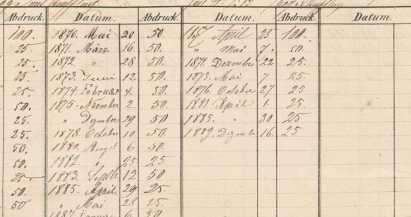 Abdruck. Datum. Abdruck. Datum. Abdruck. Datum.
100. 1870. Mai 20 50 April 23 100.
25 1871. März 16 50. " Mai 7. 50
25. 1872 " 28 50 1872 Dezember 22 25.
25 1873. Juni 12 50. 1873. Mai 7 25
25. 1874 Februar 4. 30 1876. Oktober 27 25
50. 1875. November 2 30 1881 April 1. 25
25. " Dezember 29 50 1885. " 30 25
25. 1878 Oktober 10 50 1889. Dezember 16. 25
50. 1880. August 6 50
50. 1882 " 25 25
25 1883. Septb 12 50
50. 1885. April 29 25
50 " Mai 28 25